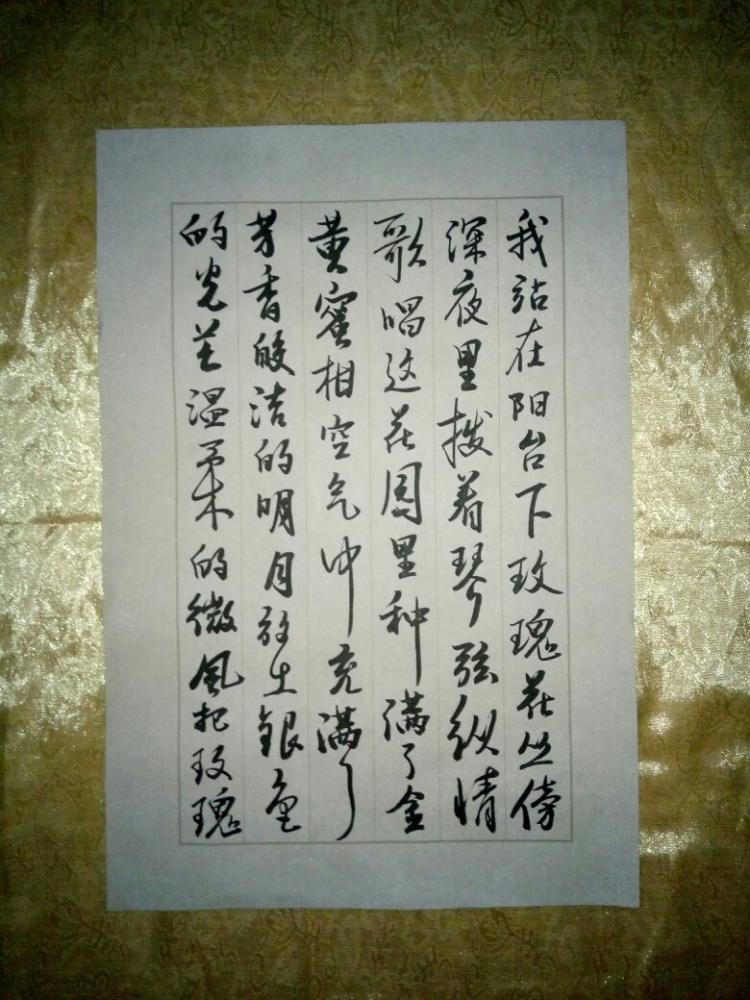 我站在阳台下玫瑰花丛傍
深夜里拨着琴弦纵情
歌唱这花园里种满了金
黄蜜柑空气中充满了
芳香皎洁的明月放出银色
的光芒温柔的微风把玫瑰